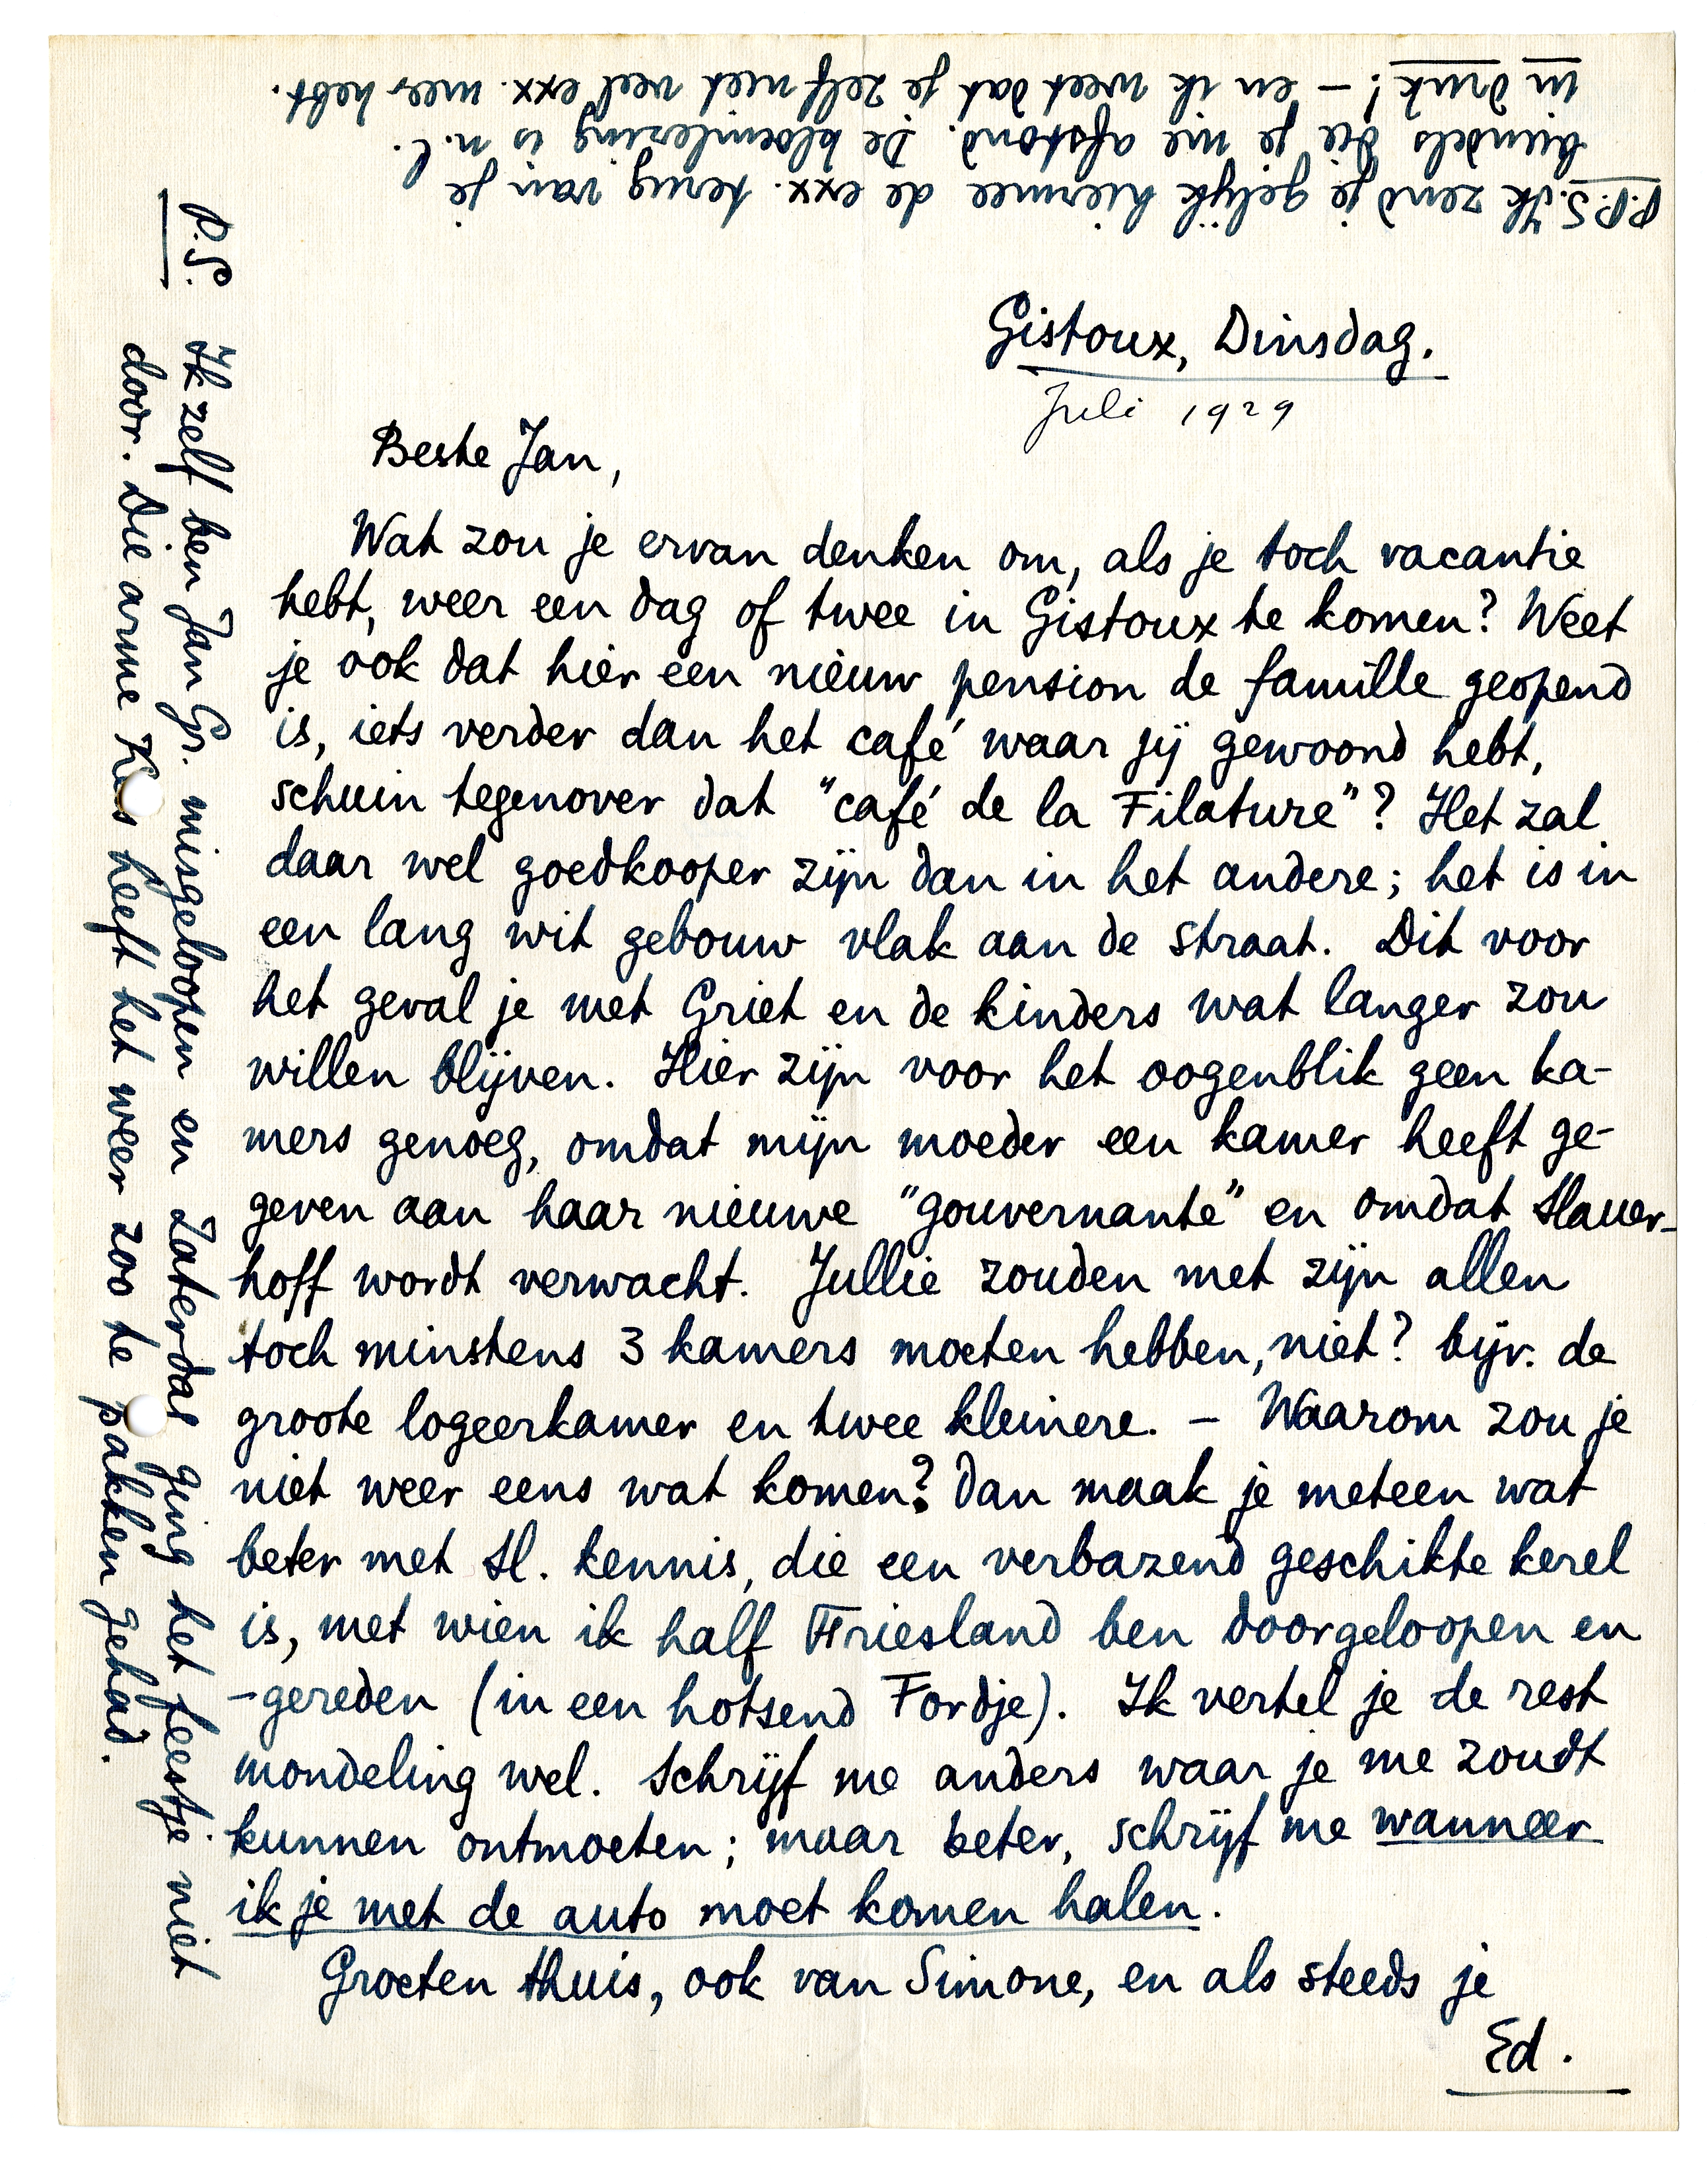 Gistoux, Dinsdag.
Juli 1929
Beste Jan,
Wat zou je ervan denken om, als je toch vacantie
hebt, weer een dag of twee in Gistoux te komen? Weet
je ook dat hier een nieuw pension de famille geopend
is, iets verder dan het café waar jij gewoond hebt,
schuin tegenover dat "café de la Filature"? Het zal
daar wel goedkooper zijn dan in het andere; het is in
een lang wit gebouw vlak aan de straat. Dit voor
het geval je met Griet en de kinders wat langer zou
willen blijven. Hier zijn voor het oogenblik geen ka-
mers genoeg, omdat mijn moeder een kamer heeft ge-
geven aan haar nieuwe "gouvernante" en omdat Slauer-
hoff wordt verwacht. Jullie zouden met zijn allen
toch minstens 3 kamers moeten hebben, niet? bijv. de
groote logeerkamer en twee kleinere. – Waarom zou je
niet weer eens wat komen? Dan maak je meteen wat
beter met Sl. kennis, die een verbazend geschikte kerel
is, met wien ik half Friesland ben doorgeloopen en
-gereden (in een hotsend Fordje). Ik vertel je de rest
mondeling wel. Schrijf me anders waar je me zoudt
kunnen ontmoeten; maar beter, schrijf me wanneer
ik je met de auto moet komen halen.
Groeten thuis, ook van Simone, en als steeds je
Ed.
P.S. Ik zelf ben Jan Gr. misgeloopen en Zaterdag ging het feestje niet
door. Die arme Kees heeft het weer zoo te pakken gehad.
P.P.S. Ik zend je gelijk hiermee de exx. terug van je
bundels die je me afstond. De bloemlezing is n.l.
in druk! – en ik weet dat je zelf niet veel exx. meer hebt.